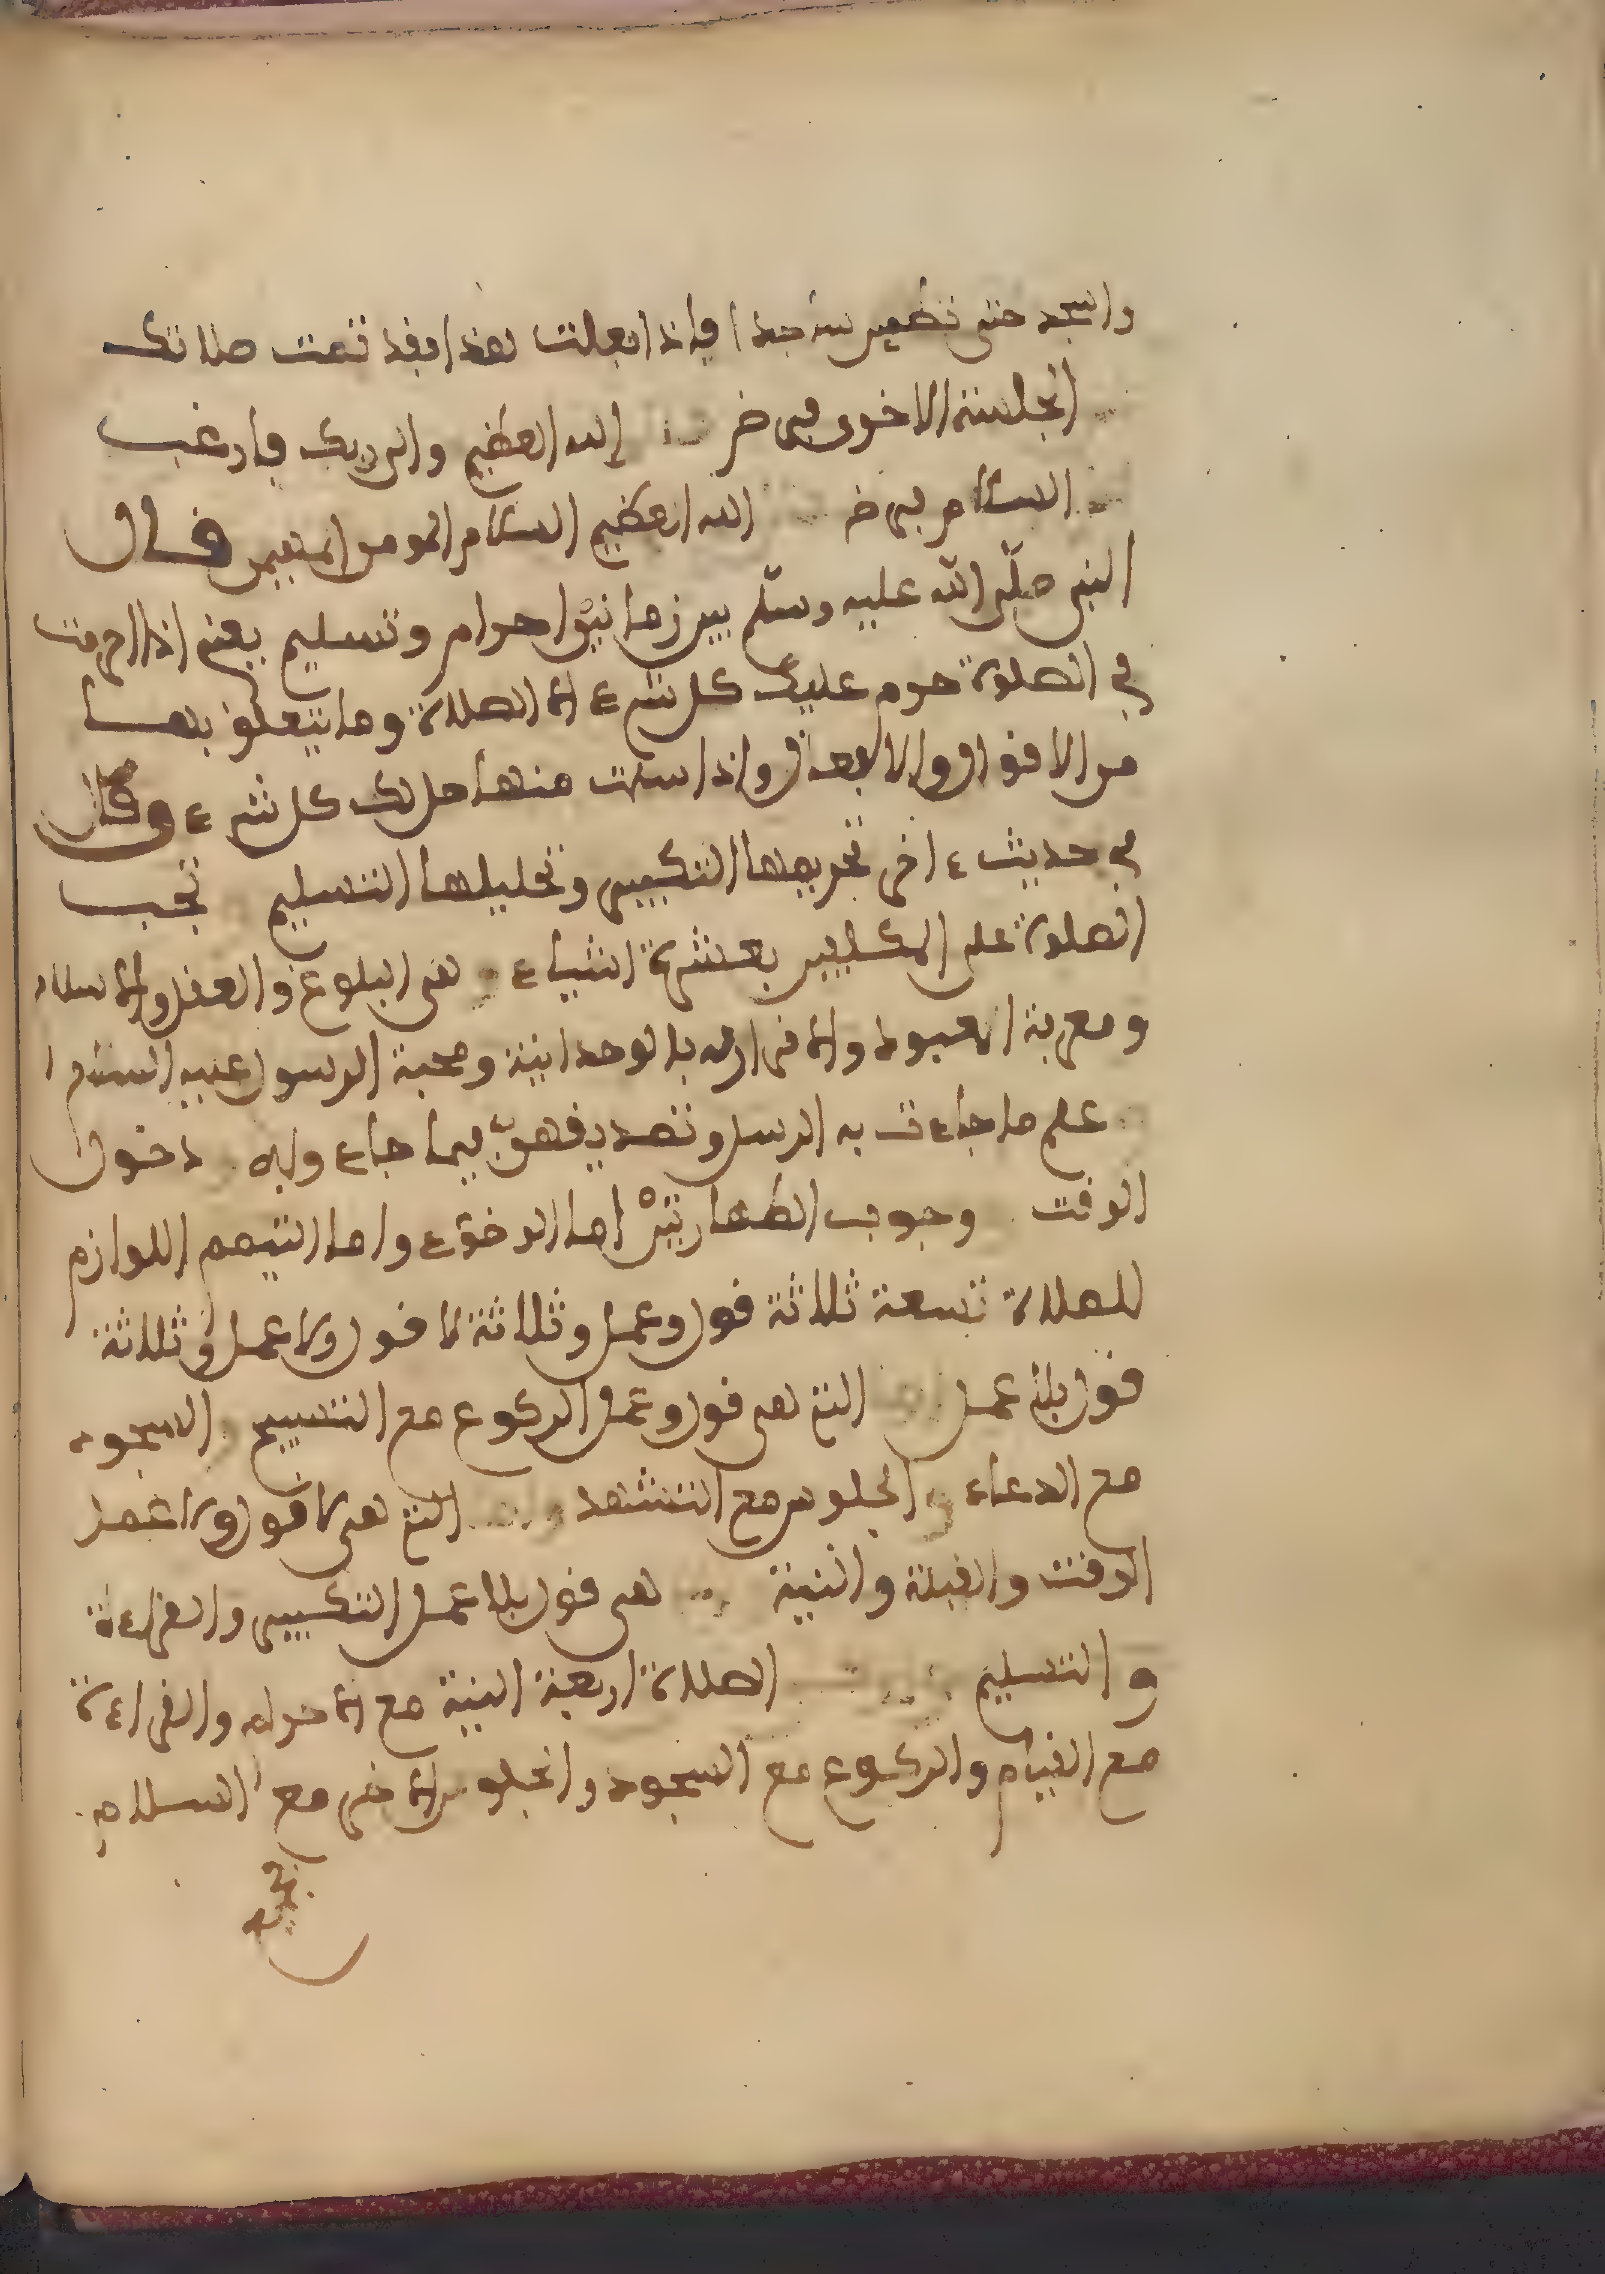 واسجد حتى تطمين ساجدا فإذا فعلت هذا فقد تمت صلاتك
الجلسة الاخرى فرض الله العظيم والى ربك فارغب
السلام فرض الله العظيم السلام المومن المهيمن قال
النبي صلى الله عليه وسلم بين زمانين احرام وتسليم يعني اذا احرمت
في الصلوة حرم عليك كل شيء الا الصلاة وما يتعلق بها
من الاقوال والافعال واذا سلمت منها حل لك كل شيء وقال
في حديث ءاخر تحريمها التكبير وتحليلها التسليم تجب
الصلوة على المكلفين بعشرة اشياء هي البلوغ والعقل والاسلام
ومعرفة المعبود والاقرار له بالوحدانية ومحبة الرسول عليه السلام
على ما جاءت به الرسل وتصديقهم فيما جاء وا به دخول
الوقت وجوب الطهارتين اما الوضوء واما التيمم اللوازم
للصلاة تسعة ثلاثة قول وعمل وثلاثة لا قول ولا عمل وثلاثة
قول بلا عمل التي هي قول وعمل الركوع مع التسبيح السجود
مع الدعاء الجلوس مع التشهد التي هي لا قول ولا عمل
الوقت والقبلة والنية هي قول بلا عمل التكبير والقراءة
والتسليم الصلاة اربعة النية مع الاحرام والقراءة
مع القيام والركوع مع السجود والجلوس الاخر مع السلام